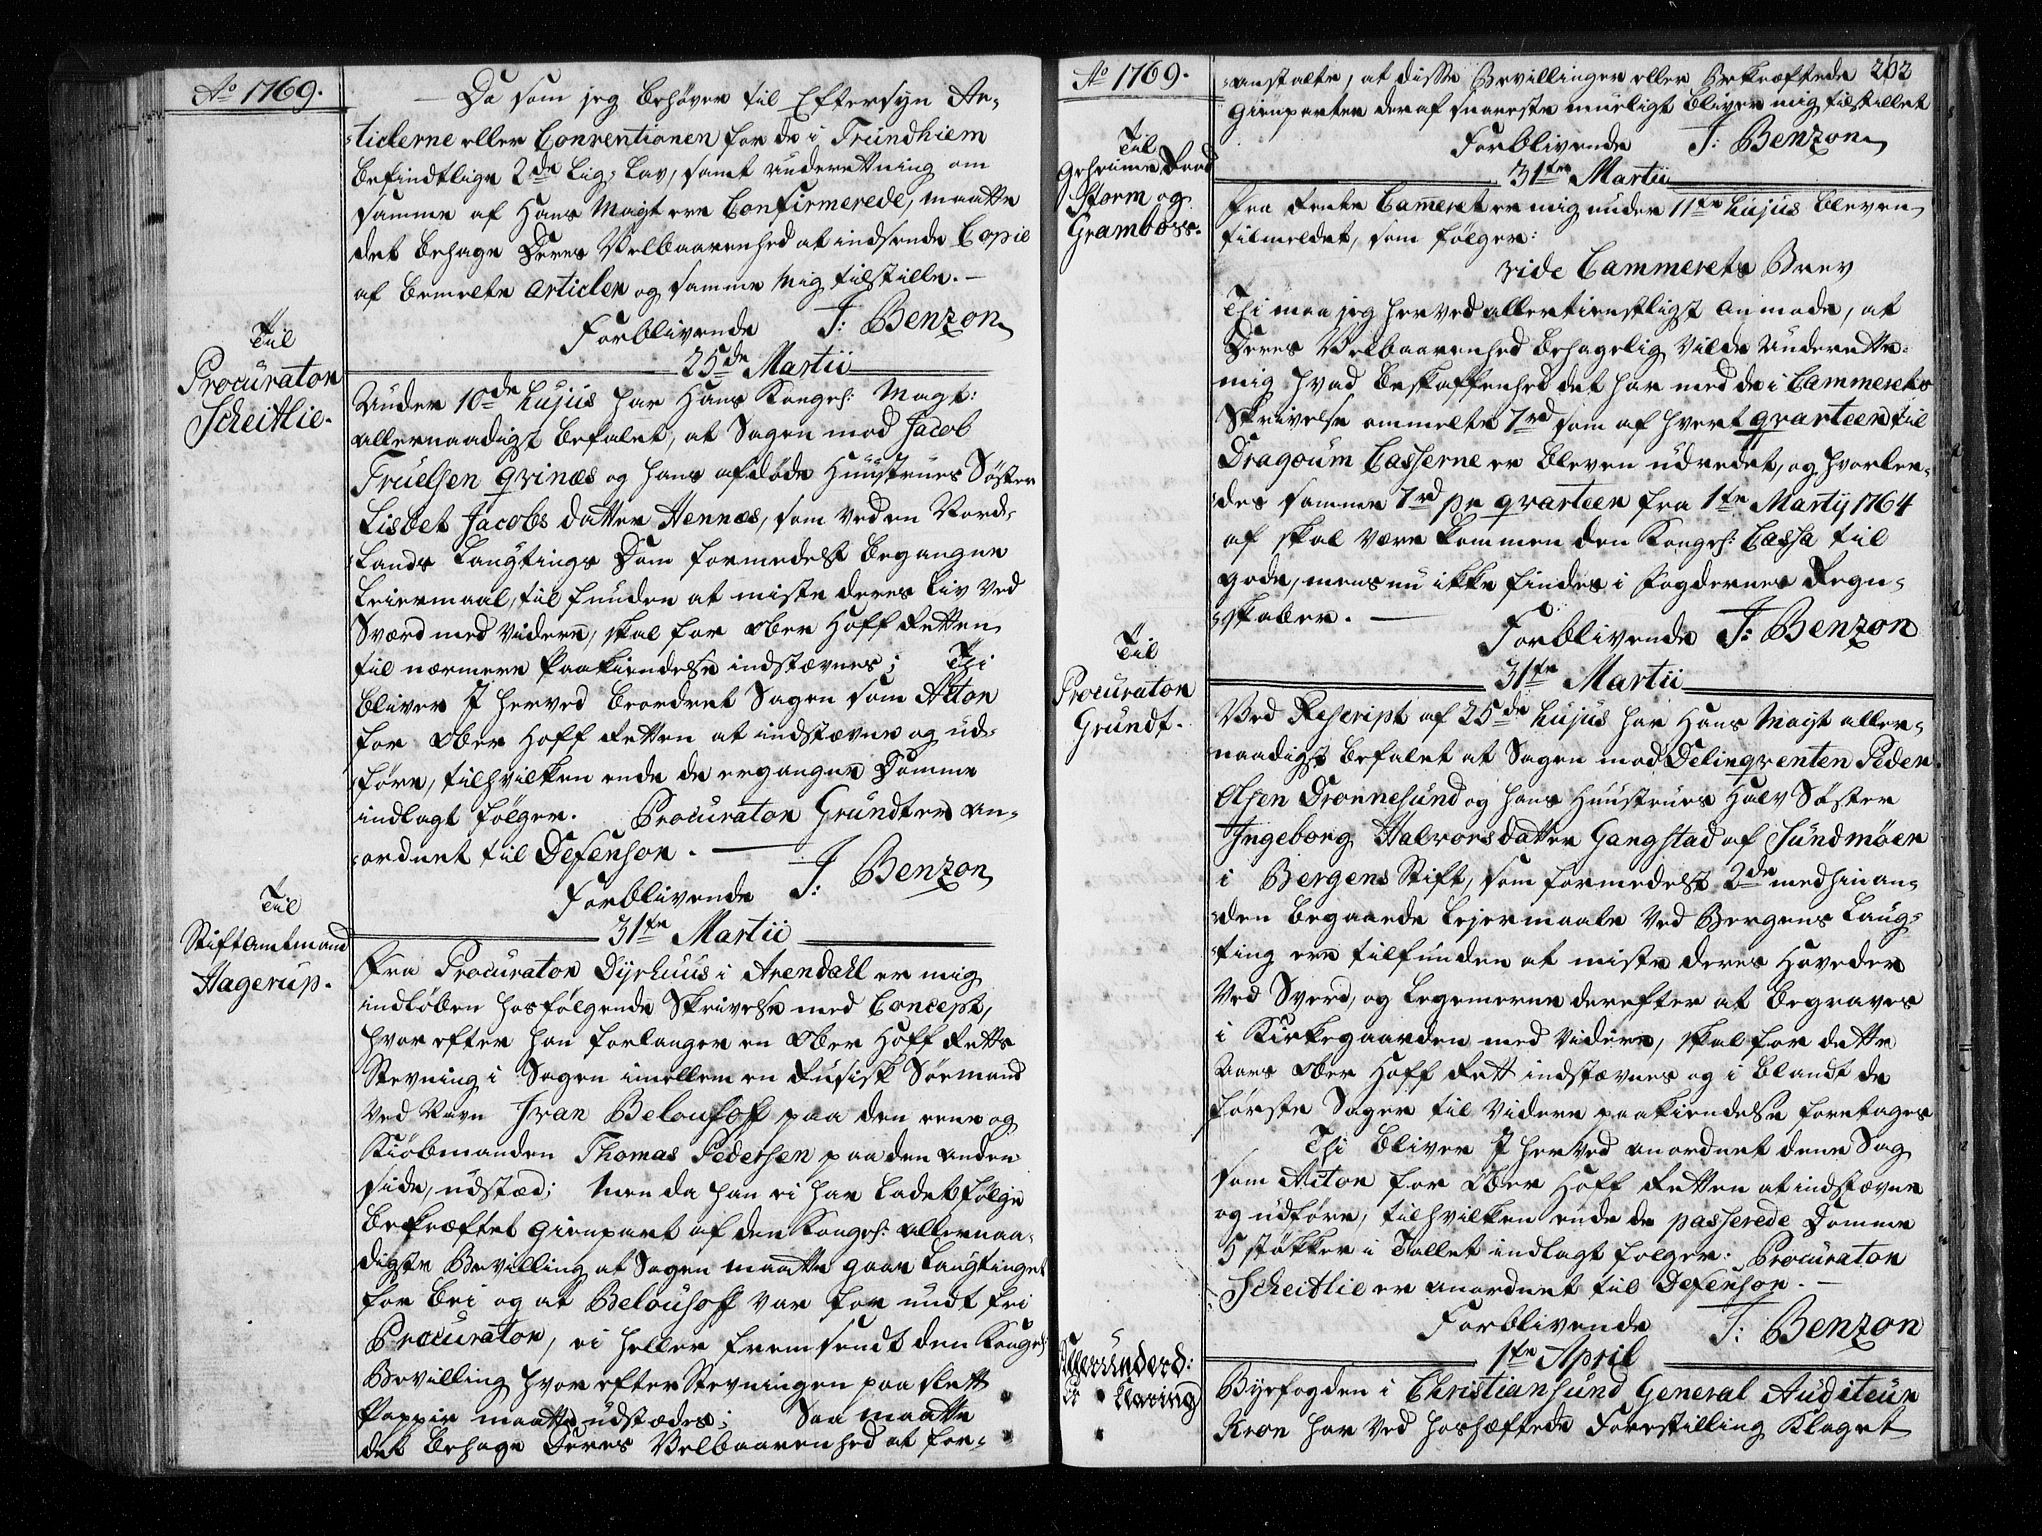 Ao 1769.
Da som jeg behøver til Eftersyn Ar-
ticlerne eller Conventionen for de i Trundhiem
befindtlige 2de Lig-Lav, samt underettning om
samme af Hans Mayt ere Confirmerede, maatte
det behage Deres Velbaarenhed at indsende Copie
af bemelte Articler og samme mig tilstille. –
Forblivende J: Benzon
25de Martii
Til
Procurator
Scheitlie.
Under 10de hujus har Hans Kongel: Mayt:
allernaadigst befalet, at Sagen mod Jacob
Truelsen qvinæs og hans afdøde Huustrues Søster
Lisbet Jacobs datter Hennæs, som ved en Nord-
lands Laugtings Dom formedelst begangne
Leiermaal, til funden at miste deres Liv ved
Sværd med videre, skal for Ober Hoff Retten
til nærmere Paakiendelse indstævnes; Thi
bliver I herved beordret Sagen som Actor
for Ober Hoff Retten at indstævne og ud-
føre, til hvilken ende de ergangne Domme
indlagt følger. Procurator Grundt er an-
ordnet til Defensor. –
Forblivende J: Benzon
31te Martii
Til
Stiftamtmand
Hagerup.
Fra Procurator Dyrhuus i Arendahl er mig
indløben hosfølgende Skrivelse med Concept,
hvor efter han forlanger en Ober Hoff Retts
Stevning i Sagen imellem en Rusisk Søemand
ved Navn Ivan Belousoff paa den eene og
Kiøbmanden Thomas Pedersen paa den anden
side, udstæd; Men da han ei har ladet følge
bekræftet Gienpart af den Kongel: allernaa-
digste Bevilling at Sagen maatte gaae Laugtinget
for bei og at Belousoff var for undt fri
Procurator, ei heller fremsendt den Kongel:
Bevilling hvor efter Stevningen paa slett
Pappir maatte udstædes; Saa maatte
det behage Deres Velbaarenhed at for-
Ao 1769.
202
anstalte, at disse Bevillinger eller Bekræftede
Gienparter deraf snareste mueligt bliver mig tilstillet
Forblivende J: Benzon
31te Martii
Til
Geheime Raad
Storm og
Gramboss.
Fra Rente Cammeret er mig under 11te hujus bleven
tilmeldet, som følger:
vide Cammerets Brev
Thi maa jeg herved allertienstligst anmode, at
Deres Velbaarenhed behagelig vilde underette
mig hvad beskaffenhed det har med de i Cammerets
Skrivelse ommelte 1rd som af hvert qvarteer til
Dragoun Casserne er bleven udredet, og hvorle-
des samme 1rd pr qvarteer fra 1te Martij 1764
af skal være kommen den Kongel: Cassa til
gode, mens nu ikke findes i Fogdernes Regn-
skaber. –
Forblivende J: Benzon
31te Martii
Til
Procurator
Grundt.
Ved Rescript af 25de hujus har Hans Mayt aller-
naadigst befalet at Sagen mod Delinqventen Peder
Olsen Dronnesund og hans Huustrues Halv Søster
Ingeborg Halvors datter Gangstad af Sundmøer
i Bergens Stift, som formedelst 2de med hinan-
den begaaede Lejermaale ved Bergens Laug-
ting ere tilfunden at miste deres Hoveder
ved Sverd, og Legemerne derefter at begraves
i Kirkegaarden med videre, skal for dette
Aars Ober Hoff Rett indstævnes og i blandt de
første Sager til videre paakiendelse foretages
Thi bliver I herved anordnet denne Sag
som Actor for Ober Hoff Retten at indstævne
og udføre, til hvilken ende de passerede Domme
5 støkker i Tallet indlagt følger. Procurator
Scheitlie er anordnet til Defensor. –
Forblivende J: Benzon
1te April
Byefogden i Christiansund General Auditeur
Kron har ved hoshæftede Forestilling klaget